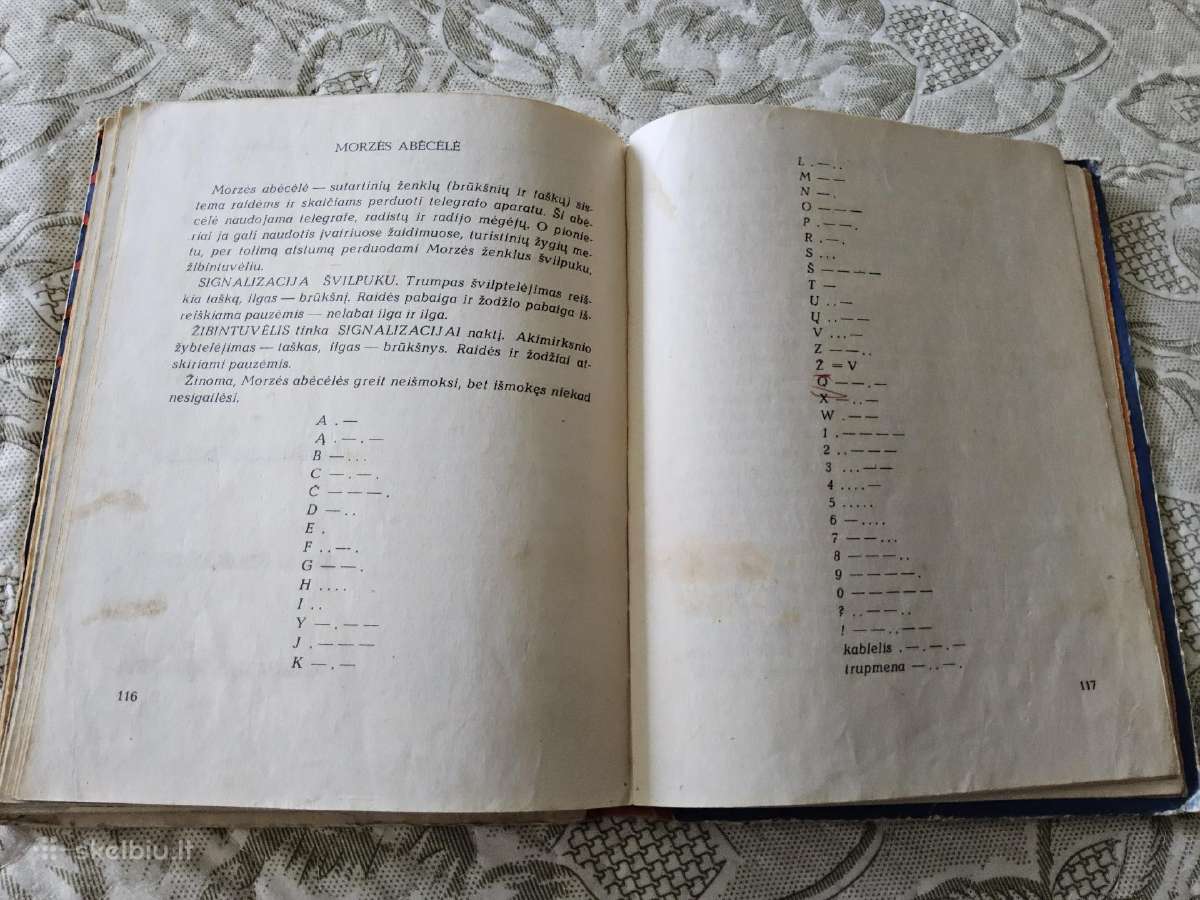 MORZĖS ABĖCĖLĖ
Morzės abėcėlė — sutartinių ženklų (brūkšnių ir taškų) sis-
tema raidėms ir skaičiams perduoti telegrafo aparatu. Ši abė-
cėlė naudojama telegrafe, radistų ir radijo mėgėjų. O pionie-
riai ja gali naudotis įvairiuose žaidimuose, turistinių žygių me-
tu, per tolimą atstumą perduodami Morzės ženklus švilpuku,
žibintuvėliu.
SIGNALIZACIJA ŠVILPUKU. Trumpas švilptelėjimas reiš-
kia tašką, ilgas — brūkšnį. Raidės pabaiga ir žodžio pabaiga iš-
reiškiama pauzėmis — nelabai ilga ir ilga.
ŽIBINTUVĖLIS tinka SIGNALIZACIJAI naktį. Akimirksnio
žybtelėjimas — taškas, ilgas — brūkšnys. Raidės ir žodžiai at-
skiriami pauzėmis.
Žinoma, Morzės abėcėlės greit neišmoksi, bet išmokęs niekad
nesigailėsi.
A . —
Ą . — . —
B — . . .
C — . — .
Č — — — .
D — . .
E .
F . . — .
G — — .
H . . . .
I . .
Y — . — —
J . — — —
K — . —
116
L . — . .
M — —
N — .
O — — —
P . — — .
R . — .
S . . .
Š — — — —
T —
U . . —
Ų . . — —
V . . . —
Z — — . .
Ž = V
Q — — . —
X — . . —
W . — —
1 . — — — —
2 . . — — —
3 . . . — —
4 . . . . —
5 . . . . .
6 — . . . .
7 — — . . .
8 — — — . .
9 — — — — .
0 — — — — —
? . . — — . .
! — — . . — —
kablelis . — . — . —
trupmena — . . — .
117
skelbiu.lt